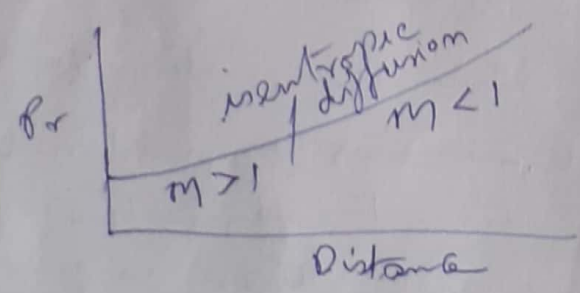 isentropic
diffusion
Pr
m > 1
m < 1
Distance